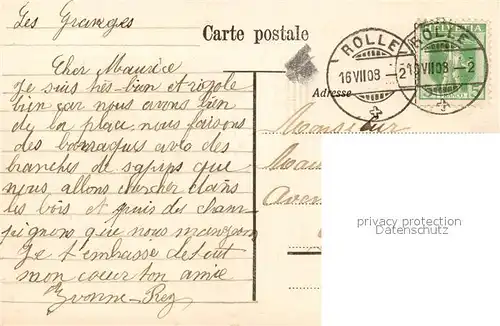 Les Granges
Carte postale
HELVETIA
ROLLE
ROLLE
16 VII 08 – 2
16 VII 08 – 2
Adresse
Cher Maurice
Je suis très-bien et rigole
bien car nous avons bien
de la place, nous faisons
des baraques avec des
branches de sapins que
nous allons chercher dans
les bois et puis des cham-
pignons que nous mangeons
Je t'embrasse de tout
mon coeur ton amie
Yvonne-Rey
Monsieur
privacy protection
Datenschutz